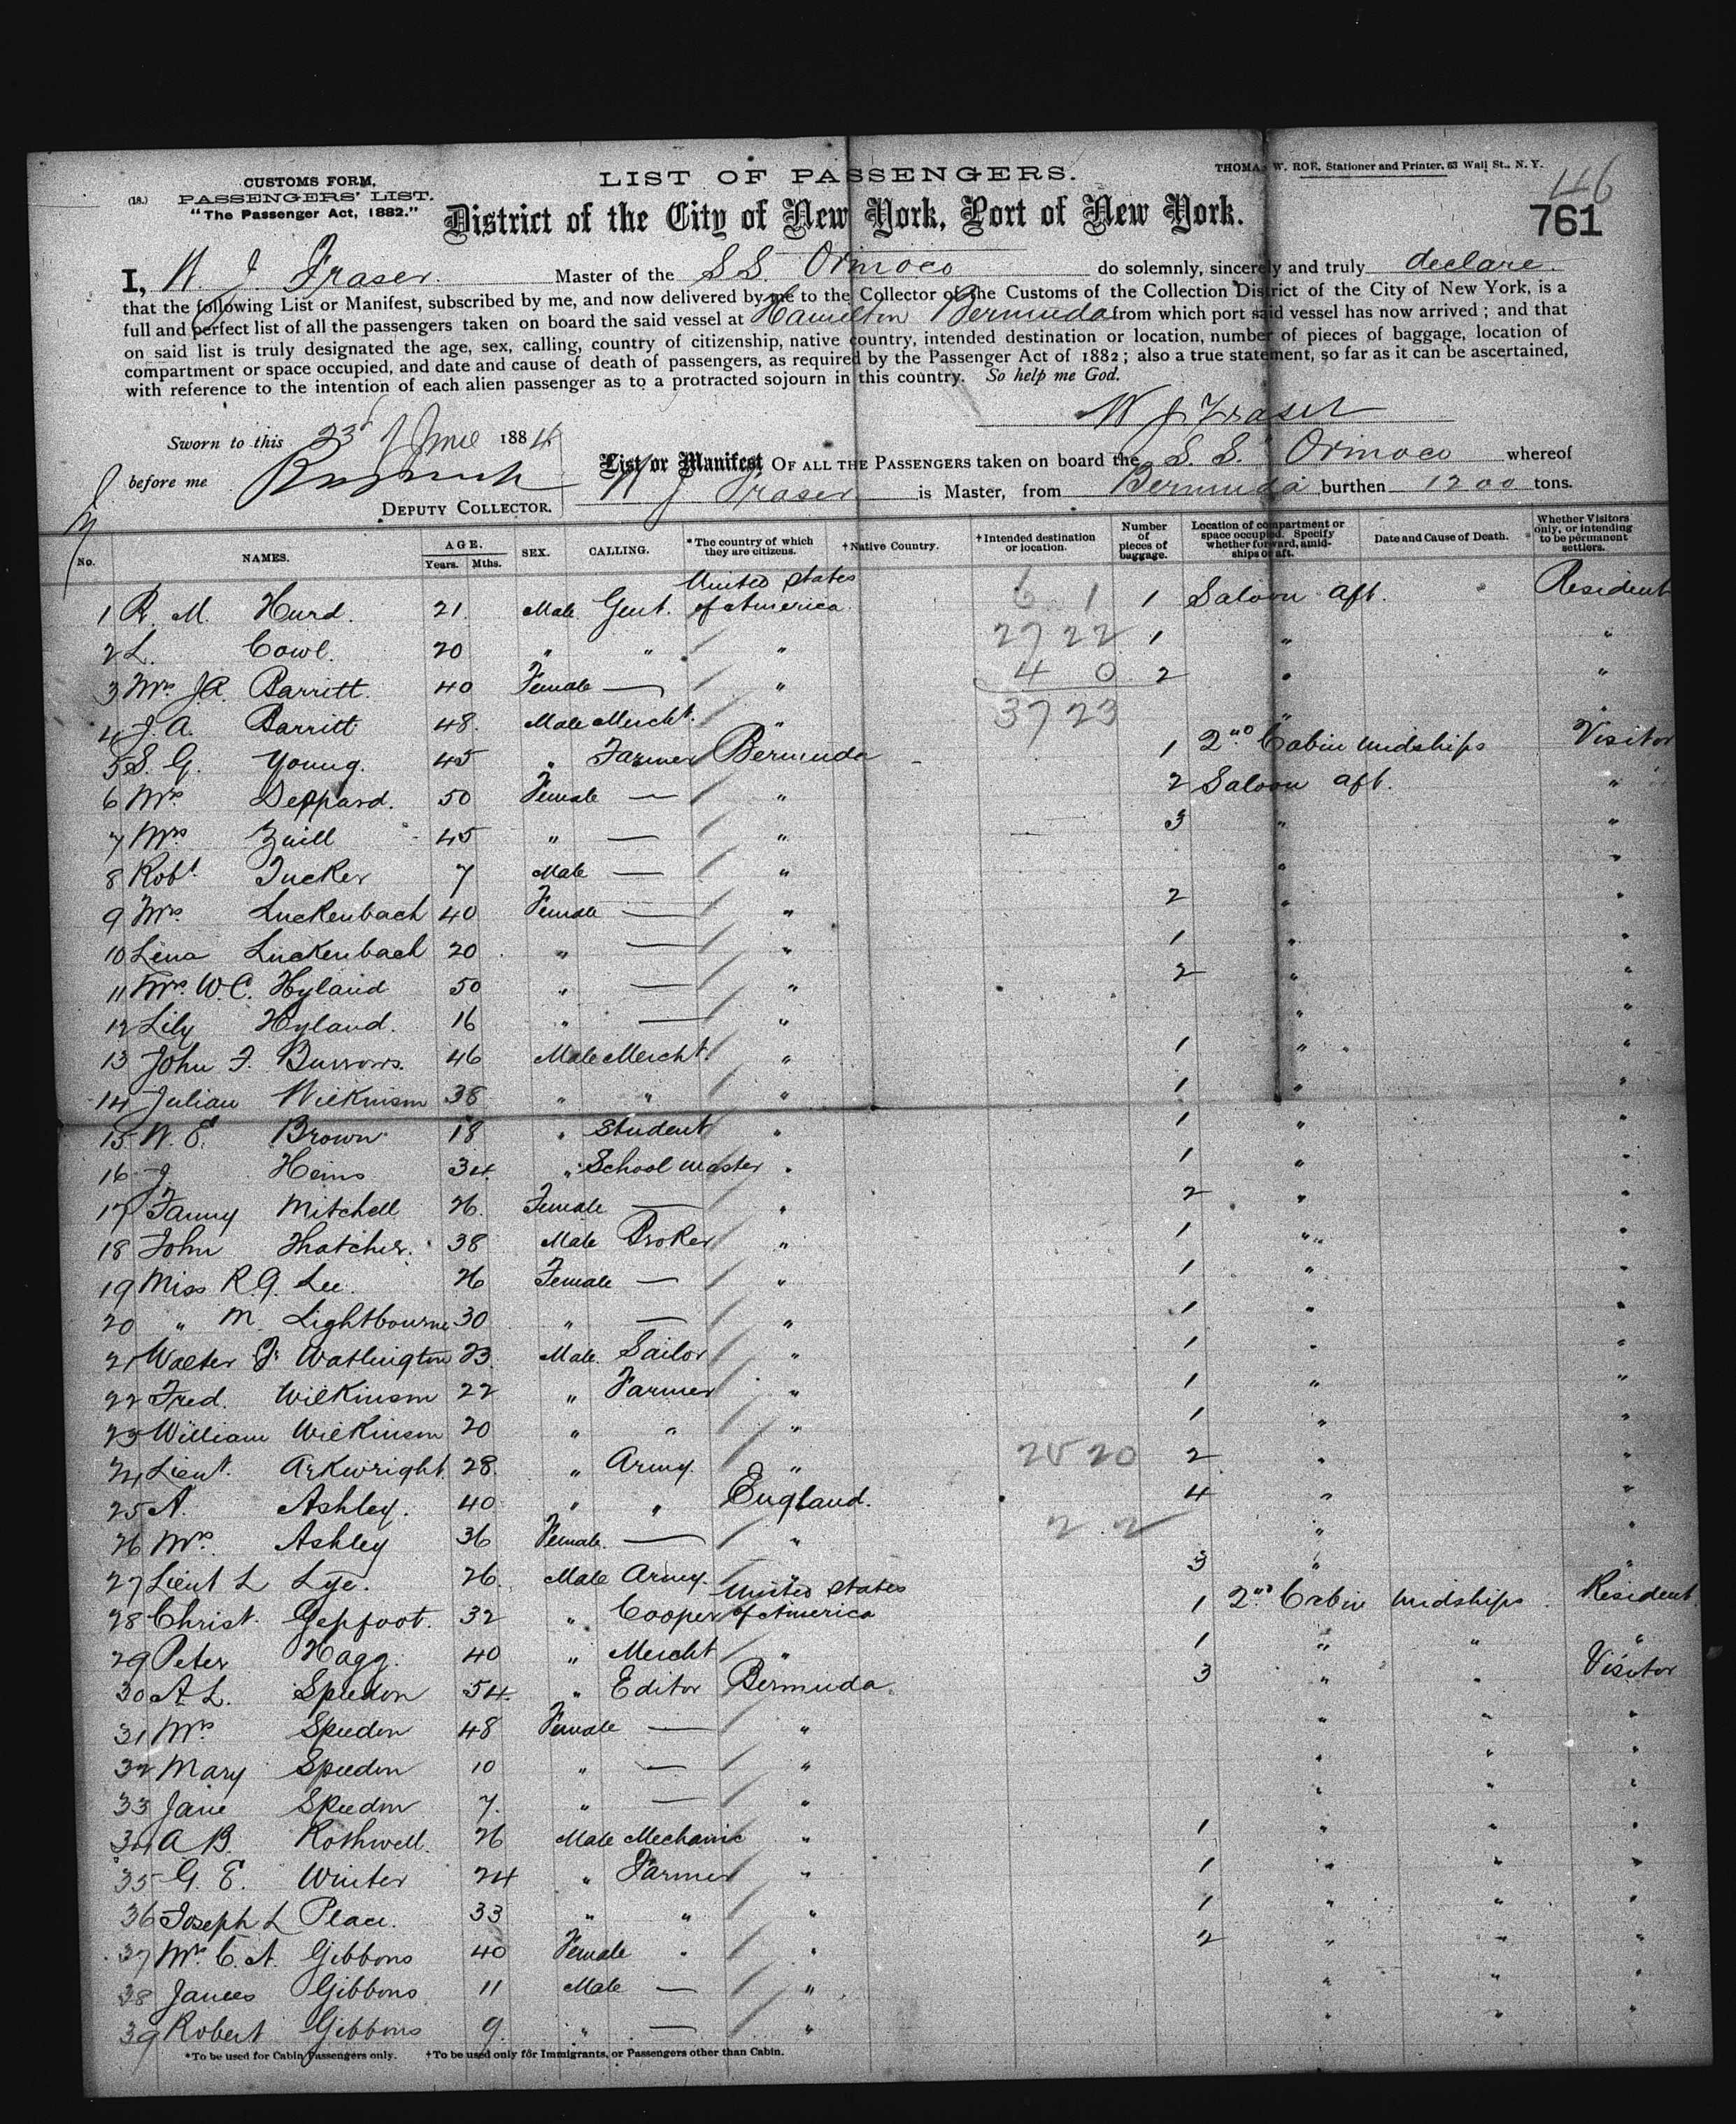 THOMAS W. ROE, Stationer and Printer, 63 Wall St., N. Y.
46
761
(18.)
CUSTOMS FORM,
PASSENGERS' LIST.
"The Passenger Act, 1882."
LIST OF PASSENGERS.
District of the City of New York, Port of New York.
I, W. J. Fraser. Master of the S.S. Orinoco do solemnly, sincerely and truly declare
that the following List or Manifest, subscribed by me, and now delivered by me to the Collector of the Customs of the Collection District of the City of New York, is a
full and perfect list of all the passengers taken on board the said vessel at Hamilton Bermuda from which port said vessel has now arrived; and that
on said list is truly designated the age, sex, calling, country of citizenship, native country, intended destination or location, number of pieces of baggage, location of
compartment or space occupied, and date and cause of death of passengers, as required by the Passenger Act of 1882; also a true statement, so far as it can be ascertained,
with reference to the intention of each alien passenger as to a protracted sojourn in this country. So help me God.
W J Fraser
Sworn to this 23d June 1884
before me
DEPUTY COLLECTOR.
List or Manifest OF ALL THE PASSENGERS taken on board the S. S. Orinoco whereof
W J Fraser is Master, from Bermuda burthen 1200 tons.
No. NAMES. AGE. Years. Mths. SEX. CALLING. *The country of which they are citizens. †Native Country. †Intended destination or location. Number of pieces of baggage. Location of compartment or space occupied. Specify whether forward, amidships or aft. Date and Cause of Death. Whether Visitors only, or intending to be permanent settlers.
1 R. M. Hurd. 21. Male Gent. United States of America 6 1 1 Saloon aft. Resident
2 L. Cowl. 20 " " " 27 22 1 " "
3 Mrs J.A. Barritt. 40 Female — " 4 0 2 " "
4 J. A. Barritt 48. Male Mercht. " 37 23 " "
5 S. G. Young. 45 " Farmer Bermuda 1 2nd Cabin midships Visitor
6 Mrs Deppard. 50 Female — " 2 Saloon aft. "
7 Mrs Zuill 45 " — " 3 " "
8 Robt. Tucker 7 Male — " " "
9 Mrs Luckenbach 40 Female — " 2 " "
10 Lena Luckenbach 20 " — " 1 " "
11 Mrs. W.C. Hyland 50 " — " 2 " "
12 Lily Hyland. 16 " — " " "
13 John F. Burrows. 46 Male Mercht. " 1 " "
14 Julian Wilkinson 38 " " " 1 " "
15 W. E. Brown 18 " Student " 1 " "
16 J. Heins 34. " School master " 1 " "
17 Fanny Mitchell 26. Female — " 2 " "
18 John Thatcher. 38 Male Broker " 1 " "
19 Miss R.G. Lee. 26 Female — " 1 " "
20 " M. Lightbourne 30 " — " 1 " "
21 Walter F. Watlington 23. Male. Sailor " 1 " "
22 Fred. Wilkinson 22 " Farmer " 1 " "
23 William Wilkinson 20 " " " 1 " "
24 Lieut. Arkwright 28. " Army. " 25 20 2 " "
25 A. Ashley. 40 " " England. 4 " "
26 Mrs. Ashley 36 Female. — " 2 2 " "
27 Lieut L Lye. 26. Male Army. " 3 " "
28 Christ. Gepfoot. 32 " Cooper United States of America 1 2nd Cabin midships. Resident
29 Peter Hagg. 40 " Mercht " 1 " " "
30 A L. Speedon 54. " Editor Bermuda 3 " " Visitor
31 Mrs Speedon 48 Female — " " " "
32 Mary Speedon 10 " — " " " "
33 Jane Speedon 7. " — " " " "
34 A B. Rothwell. 26 Male Mechanic " 1 " " "
35 G. E. Winter 24 " Farmer " 1 " " "
36 Joseph L Place. 33 " " " 1 " " "
37 Mrs. C. A. Gibbons 40 Female " " 2 " " "
38 James Gibbons 11 Male — " " " "
39 Robert Gibbons 9. " — " " " "
*To be used for Cabin Passengers only. †To be used only for Immigrants, or Passengers other than Cabin.